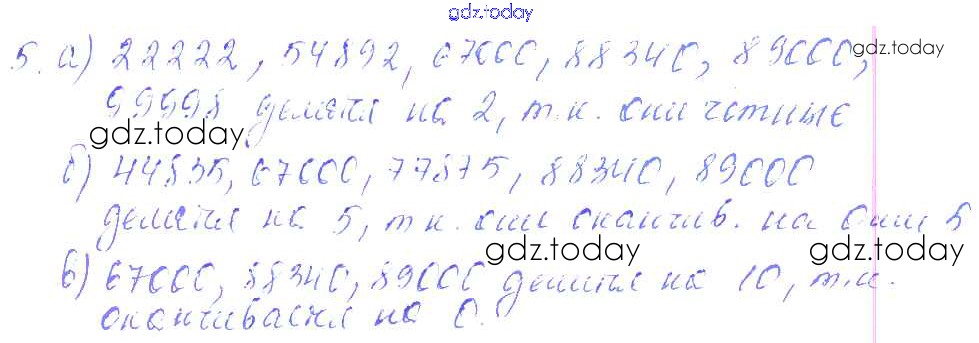 gdz.today
5. а) 22222, 54892, 67000, 88340, 89000,
gdz.today
99998 делятся на 2, т.к. они чётные
gdz.today
б) 44835, 67000, 77875, 88340, 89000
делятся на 5, т.к. они оканчив. на 0 или 5
gdz.today gdz.today
в) 67000, 88340, 89000 делятся на 10, т.к.
оканчиваются на 0.